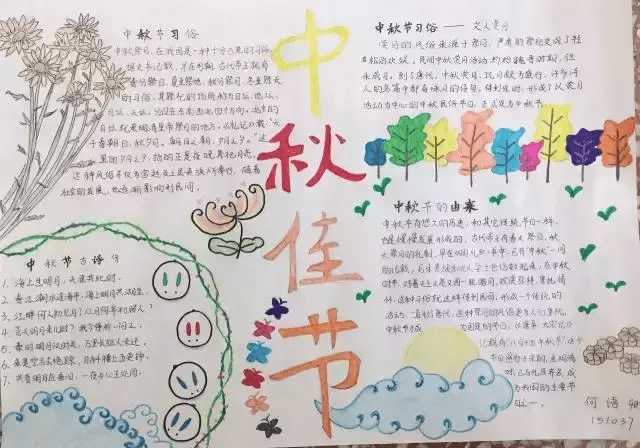 中秋佳节
中秋节习俗
中秋祭月，在我国是一种十分古老的习俗。
据史书记载，早在周朝，古代帝王就有
春分祭日、夏至祭地、秋分祭月、冬至祭天
的习俗，其祭祀的场所称为日坛、地坛、
月坛、天坛，分设在东南西北四个方向。北京的
月坛就是明清皇帝祭月的地方。《礼记》载："天
子春朝日，秋夕月。朝日以朝，夕月以夕。"这
里的夕月之夕，指的正是夜晚祭祀月亮。
这种风俗不仅为宫廷及上层贵族所奉行，随着
社会的发展，也逐渐影响到民间。
中秋节习俗——文人赏月
赏月的风俗来源于祭月，严肃的祭祀变成了轻
松的欢娱。民间中秋赏月活动约始魏晋时期，但
未成习。到了唐代，中秋赏月、玩月颇为盛行，许多诗
人的名篇中都有咏月的诗句。待到宋时，形成了以赏月
活动为中心的中秋民俗节日，正式定为中秋节。
中秋节古诗句
1. 海上生明月，天涯共此时。
2. 春江潮水连海平，海上明月共潮生。
3. 江畔何人初见月？江月何年初照人？
4. 青天明月来几时？我今停杯一问之。
5.
6. 来是空言去绝踪，月斜楼上五更钟。
7. 共看明月应垂泪，一夜乡心五处同。
中秋节的由来
中秋节有悠久的历史，和其它传统节日一样，
也是慢慢发展形成的，古代帝王有春天祭日，秋
天祭月的礼制，早在《周礼》一书中，已有"中秋"一词
的记载。后来贵族和文人学士也仿效起来，在中秋
时节，对着天上又亮又圆一轮皓月，观赏祭拜，寄托情
怀，这种习俗就这样传到民间，形成一个传统的
活动，一直到了唐代，这种祭月的风俗更为人们重视，
中秋节才成为固定的节日，《唐书·太宗记》
记载有"八月十五中秋节"，这个
节日盛行于宋朝，至明清
时，已与元旦齐名，成
为我国的主要节
日之一。
何语
151037